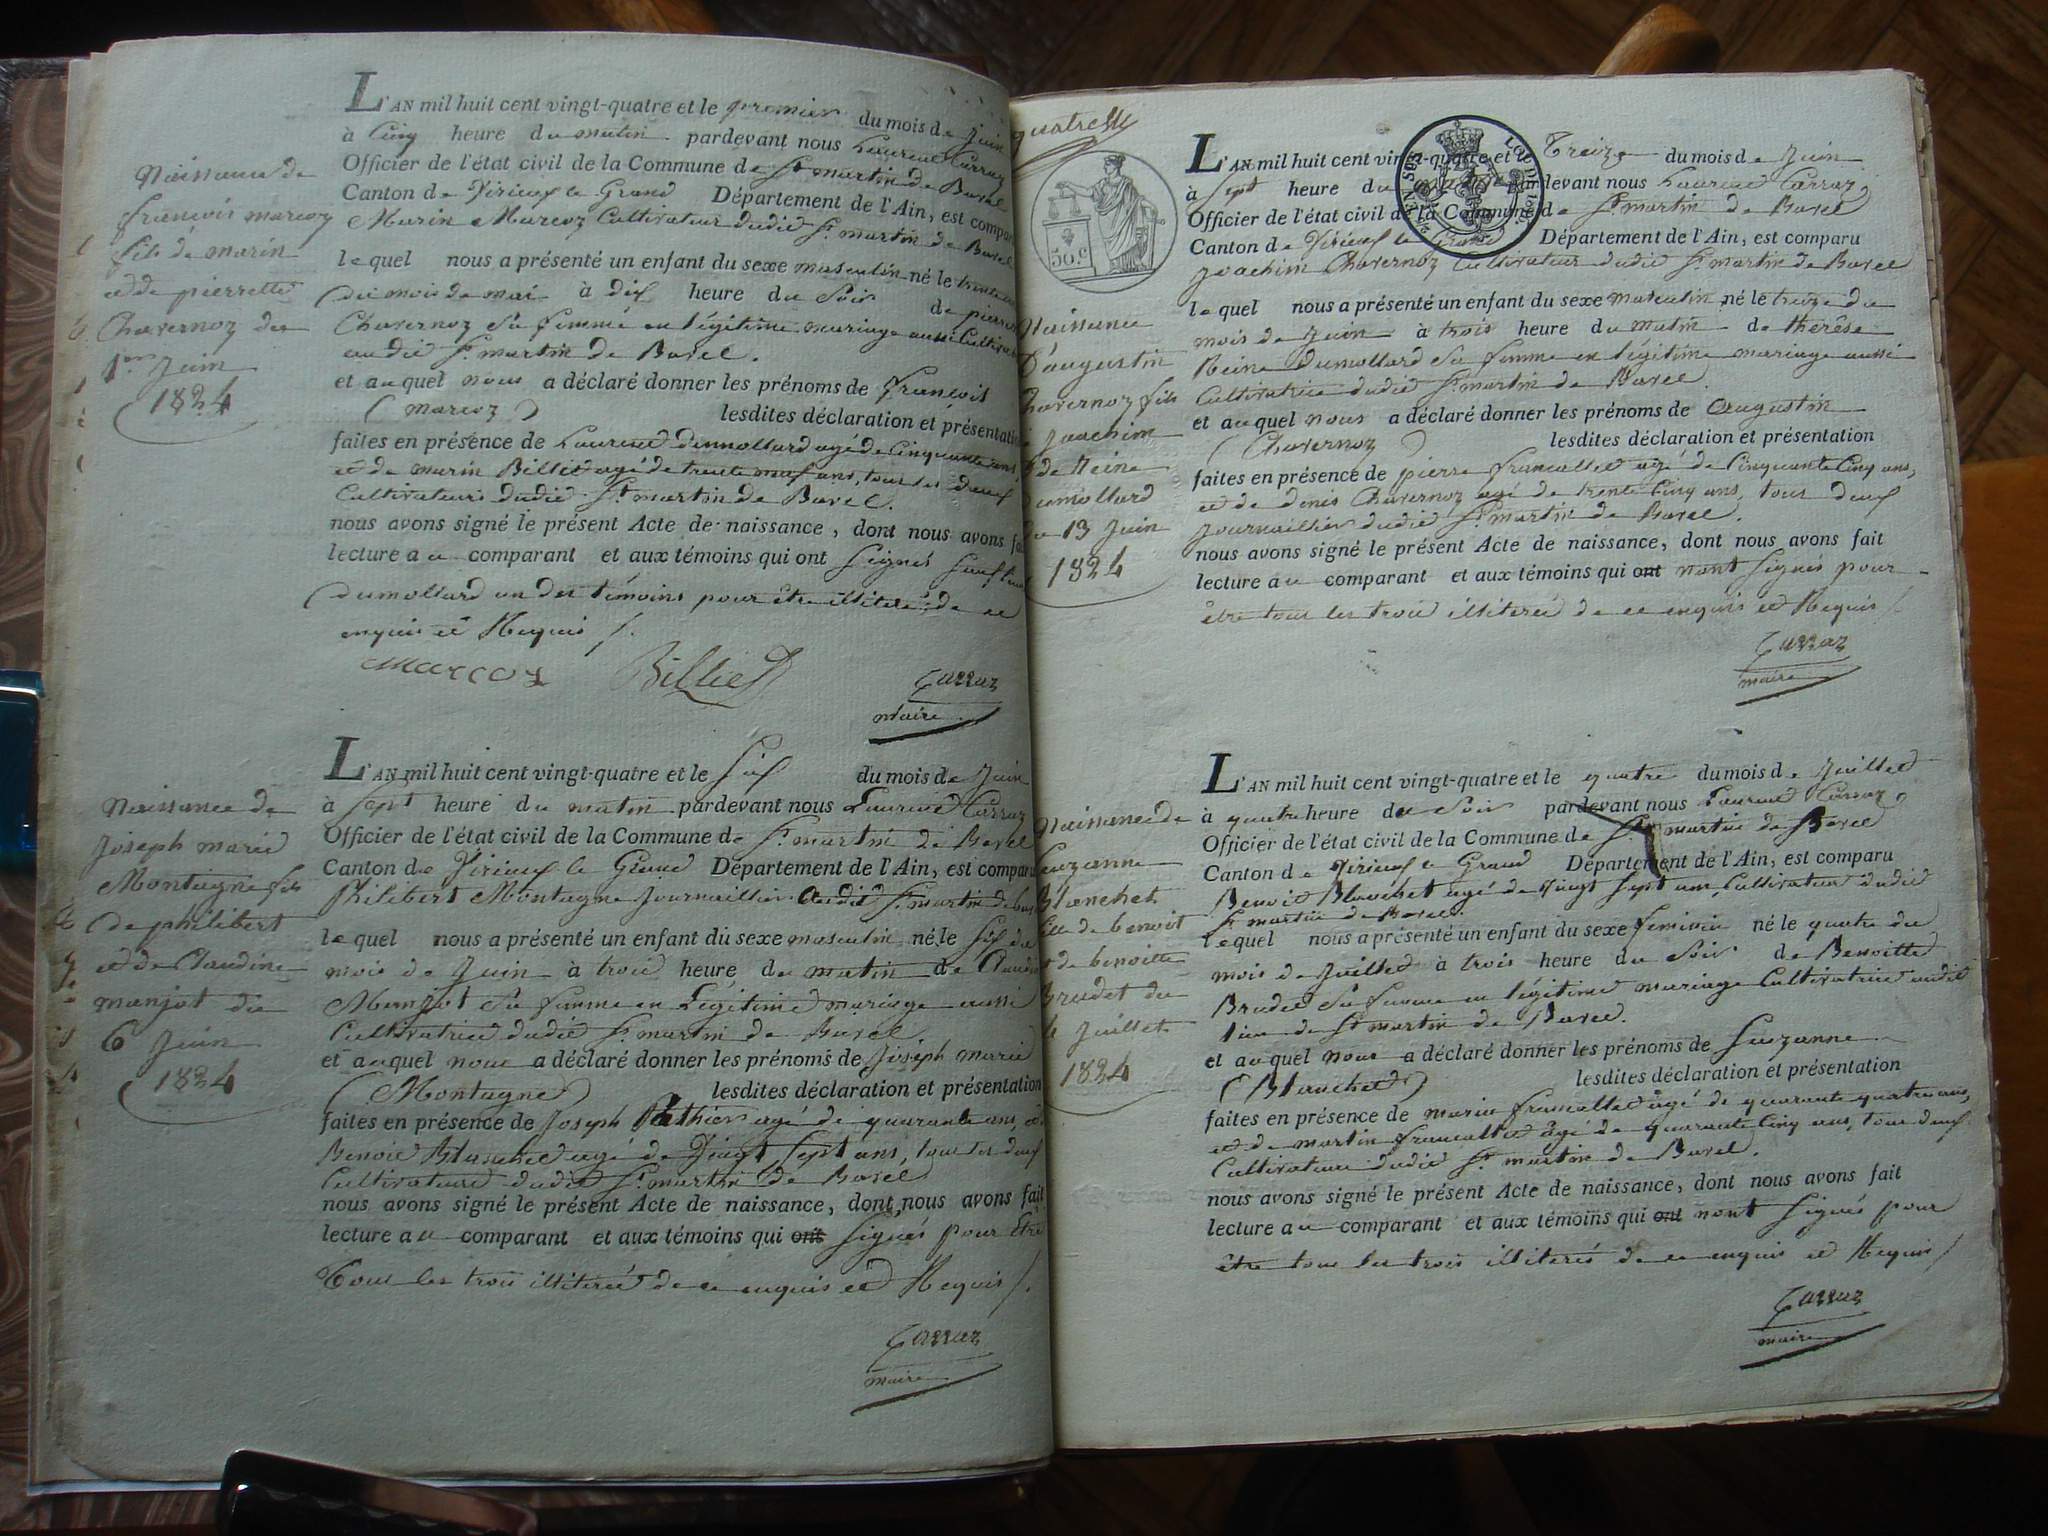 Naissance de
françois marcoz
fils de marin
et de pierrette
Charernoz du
1er Juin
1824
L'AN mil huit cent vingt-quatre et le premier du mois de Juin
à Cinq heure du matin pardevant nous Laurent Carraz
Officier de l'état civil de la Commune de St martin de Bavel
Canton de Virieux le Grand Département de l'Ain, est comparu
Marin Marcoz Cultivateur dudit St martin de Bavel
lequel nous a présenté un enfant du sexe masculin né le trente un
du mois de mai à dix heure du Soir de pierrette
Charernoz Sa femme en légitime mariage aussi Cultivatrice
audit St martin de Bavel.
et auquel nous a déclaré donner les prénoms de françois
(marcoz) lesdites déclaration et présentation
faites en présence de Laurent Dumollard agé de Cinquante ans,
et de marin Billiet agé de trente neuf ans, tous les deux
Cultivateurs dudit St martin de Bavel.
nous avons signé le présent Acte de naissance, dont nous avons fait
lecture au comparant et aux témoins qui ont Signés Sauf
dumollard un des témoins pour être illiteré, de ce
enquis et Requis /.
Marcoz Billiet Carraz
maire
Naissance de
Joseph marie
Montagne fils
de philibert
et de Claudine
manjot du
6 Juin
1824
L'AN mil huit cent vingt-quatre et le Six du mois de Juin
à Sept heure du matin pardevant nous Laurent Carraz
Officier de l'état civil de la Commune de St martin de Bavel
Canton de Virieux le Grand Département de l'Ain, est comparu
Philibert Montagne Journaillier audit St martin de bavel
lequel nous a présenté un enfant du sexe masculin né le Six du
mois de Juin à trois heure du matin de Claudine
Manjot Sa femme en Légitime mariage aussi
Cultivatrice dudit St martin de Bavel.
et auquel nous a déclaré donner les prénoms de Joseph marie
(Montagne) lesdites déclaration et présentation
faites en présence de Joseph Pathier agé de quarante ans, et
Benoit Blanchet agé de Vingt Sept ans, tous les deux
Cultivateurs dudit St martin de Bavel
nous avons signé le présent Acte de naissance, dont nous avons fait
lecture au comparant et aux témoins qui ont Signés pour être
Tous les trois illiterés de ce enquis et Requis /.
Carraz
maire
50.c
LOUIS
Naissance
D'augustin
Charernoz fils
Joachim
de Reine
dumollard
du 13 Juin
1824
L'AN mil huit cent vingt-quatre et le Treize du mois de Juin
à Sept heure du matin pardevant nous Laurent Carraz
Officier de l'état civil de la Commune de St martin de Bavel
Canton de Virieux le Grand Département de l'Ain, est comparu
Joachim Charernoz Cultivateur dudit St martin de Bavel
lequel nous a présenté un enfant du sexe masculin né le treize du
mois de Juin à trois heure du matin de therèse
Reine Dumollard Sa femme en légitime mariage aussi
Cultivatrice dudit St martin de Bavel.
et auquel nous a déclaré donner les prénoms de Augustin
(Charernoz) lesdites déclaration et présentation
faites en présence de pierre francallet agé de Cinquante Cinq ans,
et de denis Charernoz agé de trente Cinq ans, tous deux
Journaillier dudit St martin de Bavel.
nous avons signé le présent Acte de naissance, dont nous avons fait
lecture au comparant et aux témoins qui ont nont Signés pour
être tous les trois illiteré de ce enquis et Requis /.
Carraz
maire
Naissance de
Suzanne
Blanchet
fille de benoit
et de benoitte
Brudet du
4 Juillet
1824
L'AN mil huit cent vingt-quatre et le quatre du mois de Juillet
à quatre heure du Soir pardevant nous Laurent Carraz
Officier de l'état civil de la Commune de St martin de Bavel
Canton de Virieux le Grand Département de l'Ain, est comparu
Benoit Blanchet agé de Vingt Sept ans, Cultivateur dudit
St martin de Bavel.
lequel nous a présenté un enfant du sexe feminin né le quatre du
mois de Juillet à trois heure du Soir de Benoitte
Brudet Sa femme en légitime mariage Cultivatrice audit
lieu de St martin de Bavel.
et auquel nous a déclaré donner les prénoms de Suzanne
(Blanchet) lesdites déclaration et présentation
faites en présence de marin francallet âgé de quarante quatre ans,
et de martin francallet âgé de quarante Cinq ans, tous deux
Cultivateurs dudit St martin de Bavel.
nous avons signé le présent Acte de naissance, dont nous avons fait
lecture au comparant et aux témoins qui ont nont Signés pour
être tous les trois illiterés de ce enquis et Requis /
Carraz
maire